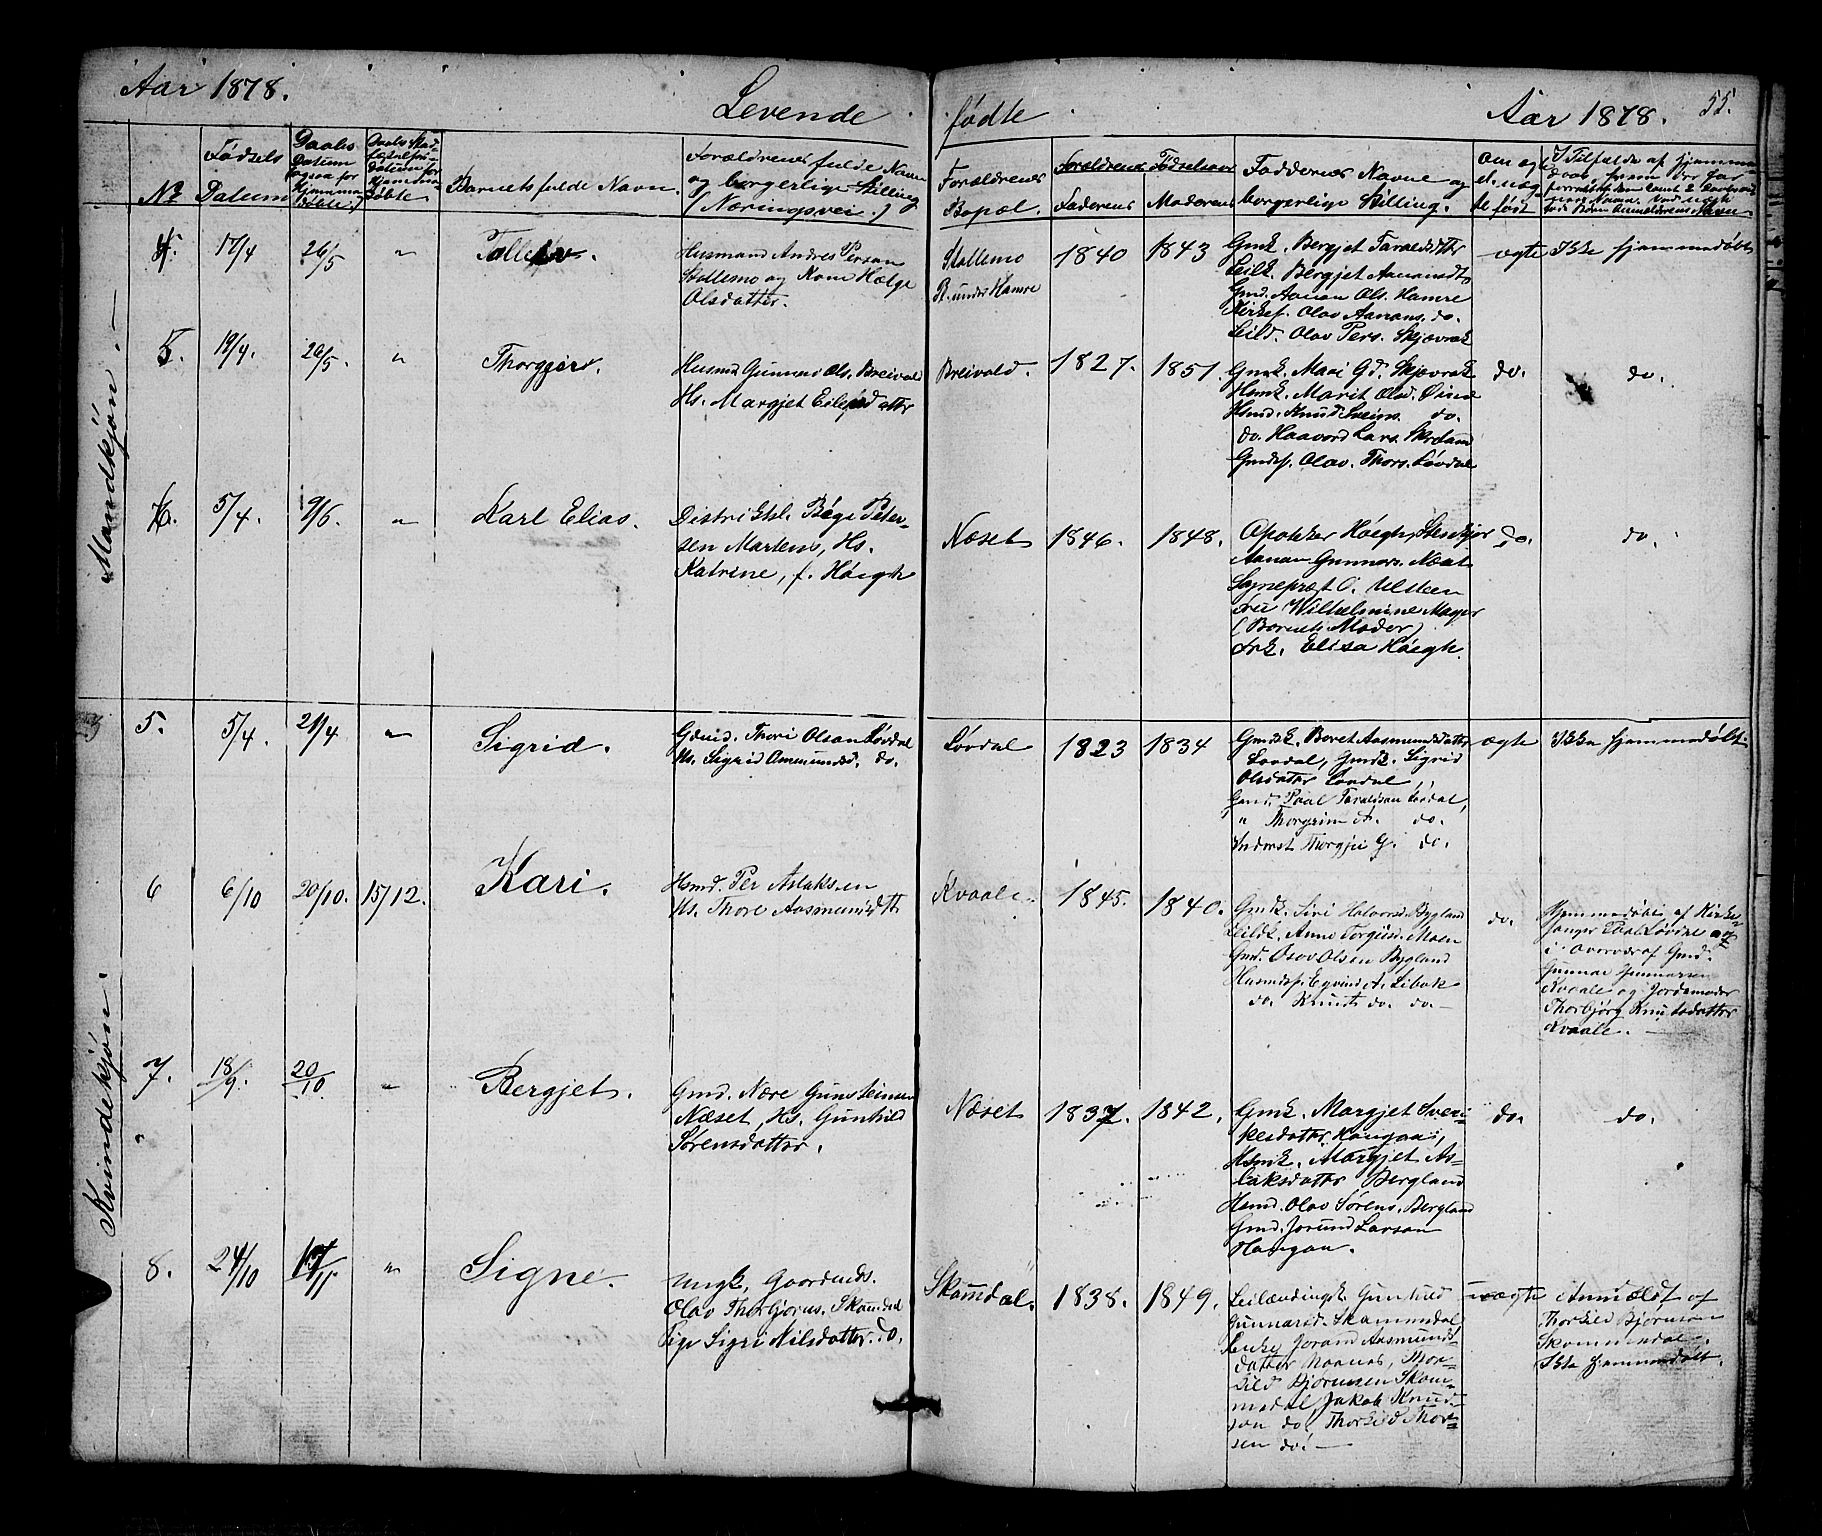 Aar 1878.
Levende
fødte
Aar 1878.
55.
No
Fødsels
Datum
Daabs
Datum
ogsaa for
Hjemmedøbte
Barnets fulde Navn.
Forældrenes fulde Navn
og borgerlige Stilling
(Næringsvei.)
Forældrenes
Bopæl.
Forældrenes Fødselsaar
Faderens
Moderens
Faddernes Navne og
borgerlige Stilling.
Om ægte
el. uægte
født
Mandkjøn.
4.
17/4
26/5
"
Tallef
Husmand Andres Person
Stallemo og Kone Helge
Olsdatter.
Stallemo
P. under Hamre
1840
1843
Gmk. Bergjet Taraldsdtter
Leilk. Bergjet Aanansdt
Gmd. Aanan Ols. Hamre
Kirkes. Olav Aanans. do.
Leild. Olav Pers. Skjævrak
ægte
Ikke hjemmedøbt
5.
19/4.
26/5.
"
Thorgjer
Husmd Gunnar Ols. Breivald
Hs. Margjet Eilefsdatter
Breivald.
1827.
1851
Gmk. Mari Gd. Skjævrak
Hsmk. Marit Olsd. Øine
Hsmd. Knud Sveins. do.
do. Haavord Lars. Skrelam
Gmds. Olav. Thors. Løvdal
do.
do.
6.
5/4.
9/6.
"
Karl Elias.
Distriktsl. Peter-
sen Martens, Hs.
Katrine, f. Høegh
Næset
1846.
1848.
Apotheker Høegh, Stenkjær
Aanan Gunnars. Næset
Sognepræst O. Ulsteen
Fru Wilhelmine Mayer
(Barnets Moder)
Frk. Elisa Høegh.
do.
do.
Kvindekjøn.
5.
5/4.
21/4
"
Sigrid.
Gmd. Thori Olsen Løvdal
Hs. Sigrid Ommundsd. do.
Løvdal
1823
1834
Gmdsk. Boret Aasmundsdatter
Løvdal, Gmdk. Sigrid
Olsdatter Løvdal,
Gmd. Paal Taraldsen Løvdal,
" Thorgrim do. do.
Inderst Thorgjei G. do.
ægte
Ikke hjemmedøbt
6
6/10
20/10.
15/12.
Kari.
Hsmd. Per Aslaksen
Hs. Thore Aasmundsdtt.
Kvaale.
1845.
1840.
Gmdk. Siri Halvorsd. Bygland
Leildk. Anne Torgusd. Moen
Gmd. Osov Olsen Bygland
Husmdsf. Eyvind A. Libak
do. Knut do. do.
do.
Hjemmedøbt af Kirke-
sanger Paal Løvdal
i Overvær af Gmd.
Gunnar Gunnarsen
Kvaale og Jordemoder
Thorbjørg Knutsdatter
Kvaale.
7.
"
18/9.
20/10
"
Bergjet.
Gmd. Nære Gunsteinsen
Næset, Hs. Gunhild
Sørensdatter.
Næset
1837.
1842.
Gmk. Margjet Sven-
kesdatter Haugaa,
Hsmk. Margjet As-
laksdatter Bergland
Hsmd. Olav Sørens. Bergland
Gmd. Jorund Larsen
Haugaa.
do.
do.
8.
24/10
17/11.
"
Signe.
Ungk. Gaardmds.
Olav Thorbjørns. Skomedal
Pige Sigri Nilsdatter. do.
Skomdal.
1838.
1849.
Leilændingsk. Gunhild
Gunnarsd. Skommedal
Jorand Aasmunds-
datter Moanes, Thor-
kild Bjørnsen Skom-
medal, Jakob Knud-
son do, Thorkild Thor-
sen do.
uægte
Anmældt af
Thorkild Bjørnson
Skommedal.
Ikke hjemmedøbt.